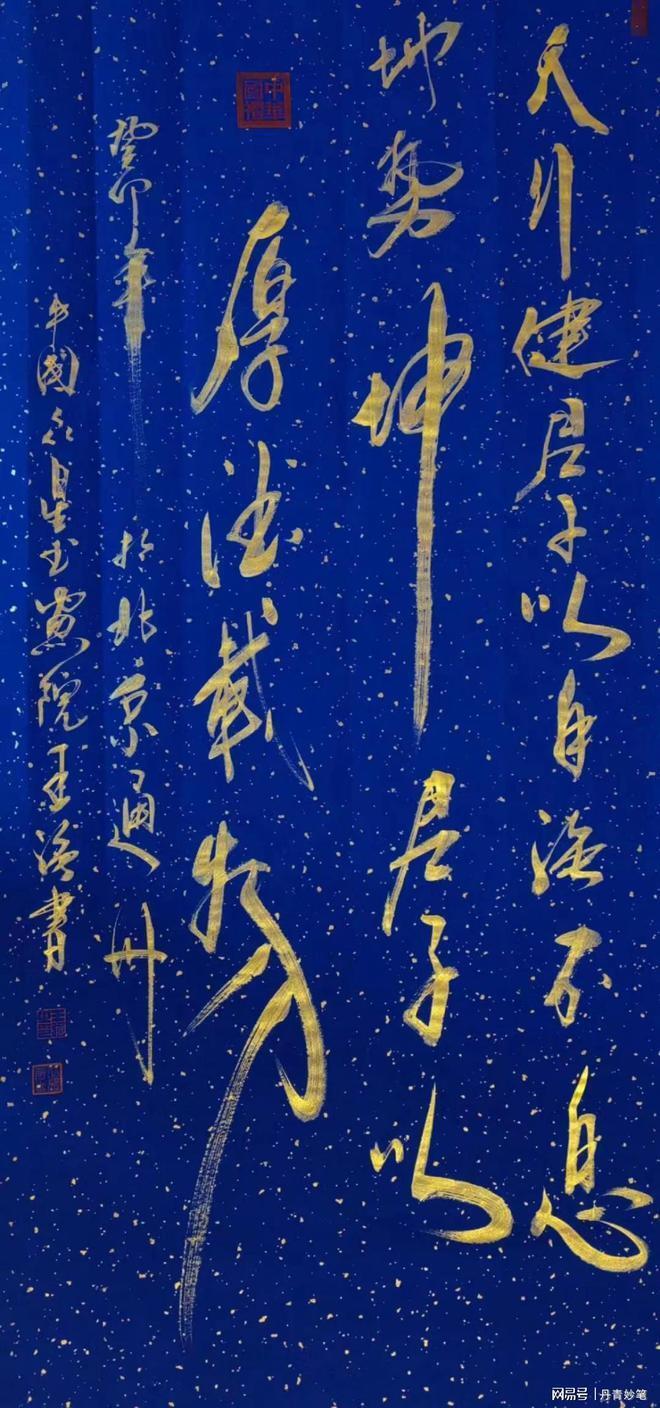 天行健君子以自强不息
地势坤君子以
厚德載物
癸卯年於北京通州
中國星书畫院王書
网易号 | 丹青妙笔